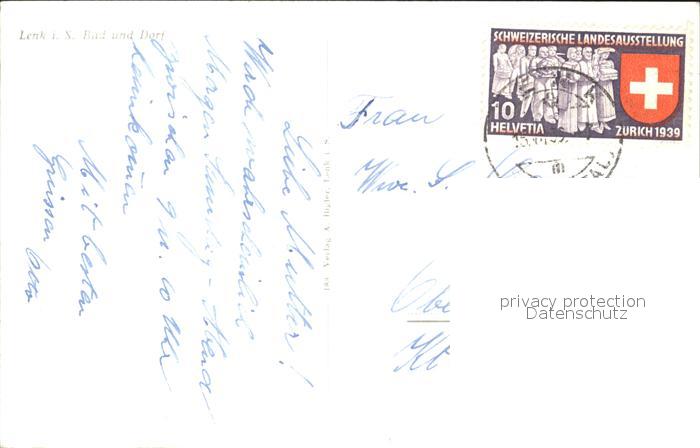 Lenk i. S. Bad und Dorf
Liebe Mutter!
Werde wahrscheinlich
Morgen Samstag - Abend
zwischen 9 u. 10 Uhr
heimkommen
Mit besten
Grüssen Otto
Verlag A. Bigler, Lenk i. S.
SCHWEIZERISCHE LANDESAUSSTELLUNG
10
HELVETIA
ZÜRICH 1939
Frau
Wwe. S.
Obe
Kt
privacy protection
Datenschutz